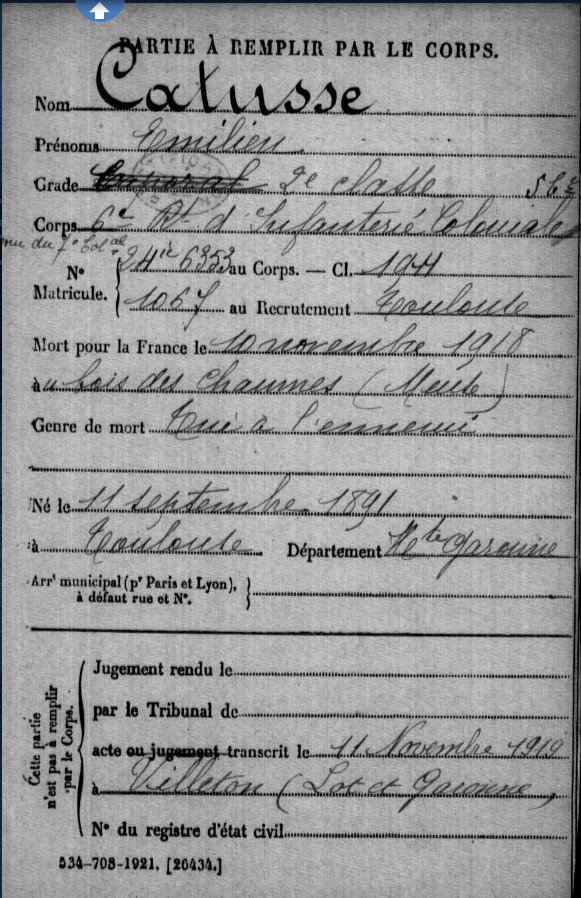 PARTIE À REMPLIR PAR LE CORPS.
Nom Catusse
Prénoms Emilien
Grade Caporal 2e classe
Corps 6e Rt d'Infanterie Coloniale
du 7e Col al
No Matricule. 24 6353 au Corps. — Cl. 1911
1067 au Recrutement Toulouse
Mort pour la France le 10 novembre 1918
au bois des Chaumes (Meuse)
Genre de mort Tué à l'ennemi
Né le 11 septembre 1891
à Toulouse Département Hte Garonne
Arrt municipal (pr Paris et Lyon),
à défaut rue et No.
Cette partie
n'est pas à remplir
par le Corps.
Jugement rendu le
par le Tribunal de
acte ou jugement transcrit le 11 Novembre 1919
à Villeton (Lot et Garonne)
No du registre d'état civil
534-708-1921. [26434.]